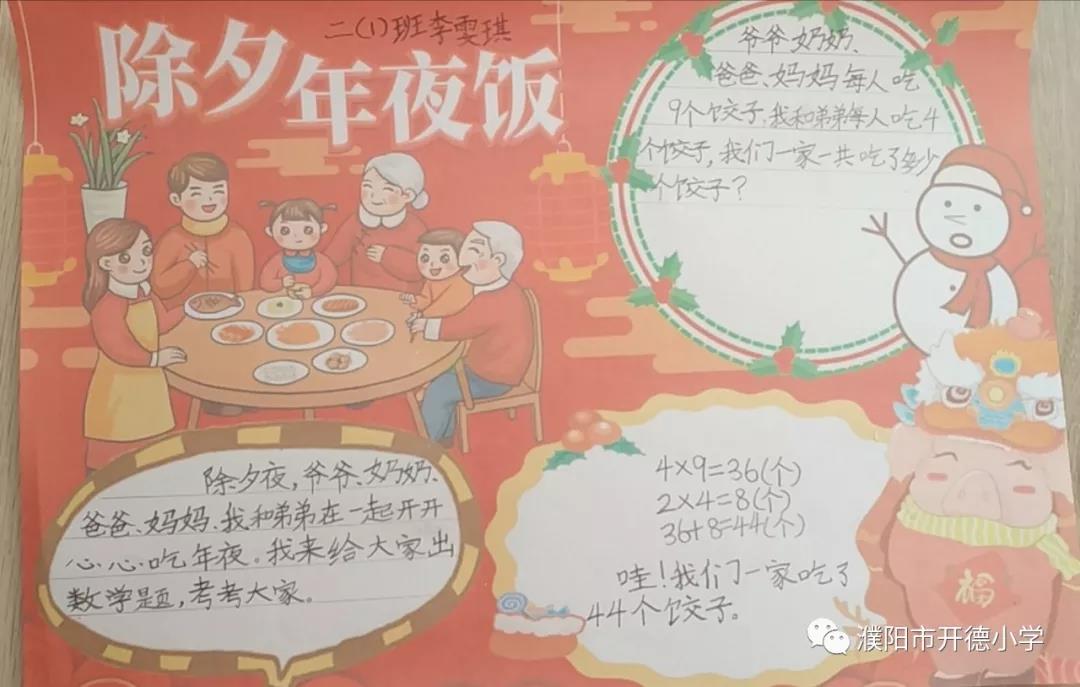 二(1)班李雯琪
除夕年夜饭
爷爷、奶奶、
爸爸、妈妈每人吃
9个饺子,我和弟弟每人吃4
个饺子,我们一家一共吃了多少
个饺子?
除夕夜,爷爷、奶奶、
爸爸、妈妈、我和弟弟在一起开开
心心吃年夜。我来给大家出
数学题,考考大家。
4×9=36(个)
2×4=8(个)
36+8=44(个)
哇!我们一家吃了
44个饺子。
福
濮阳市开德小学